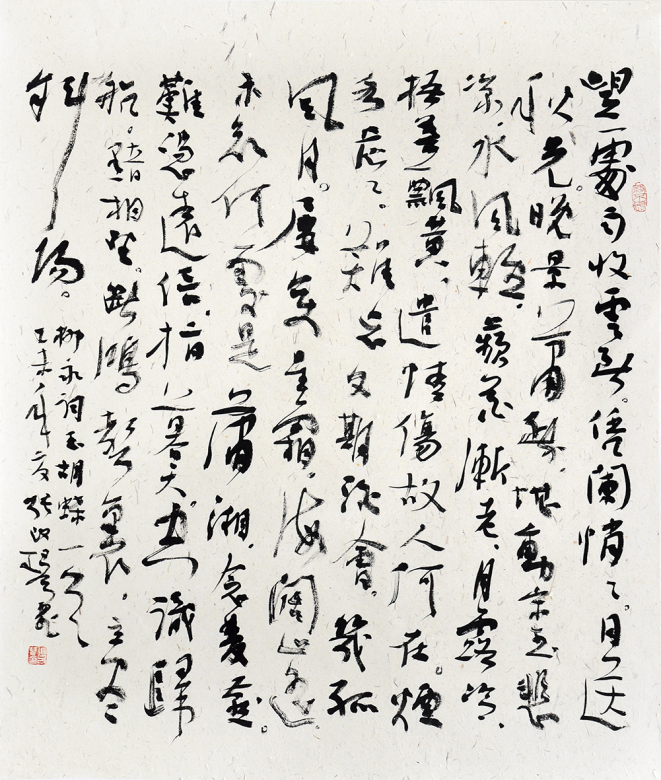 望處雨收雲斷。凭闌悄〻。目送
秋光。晚景蕭疏,堪動宋玉悲
凉。水風輕,蘋花漸老,月露冷,
梧葉飄黄。遣情傷。故人何在。煙
水茫〻。難忘。文期酒會,幾孤
風月。屢變星霜。海闊山遥
未知何處是瀟湘。念雙燕。
難憑遠信,指暮天空識歸
航。黯相望。斷鴻聲裏,立盡
斜陽。
柳永詞玉胡蝶一
乙未年夏張